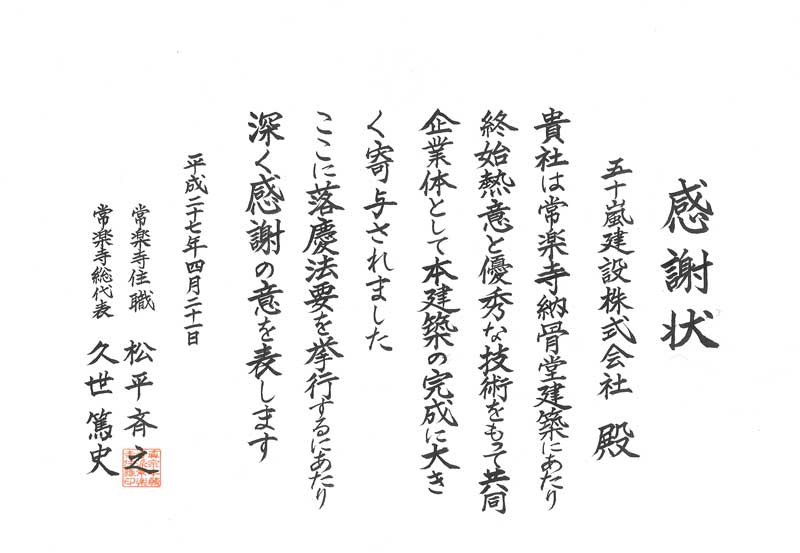 感謝状
五十嵐建設株式会社 殿
貴社は常楽寺納骨堂建築にあたり
終始熱意と優秀な技術をもって共同
企業体として本建築の完成に大き
く寄与されました
ここに落慶法要を挙行するにあたり
深く感謝の意を表します
平成二十七年四月二十一日
常楽寺住職 松平斉之
常楽寺総代表 久世篤史